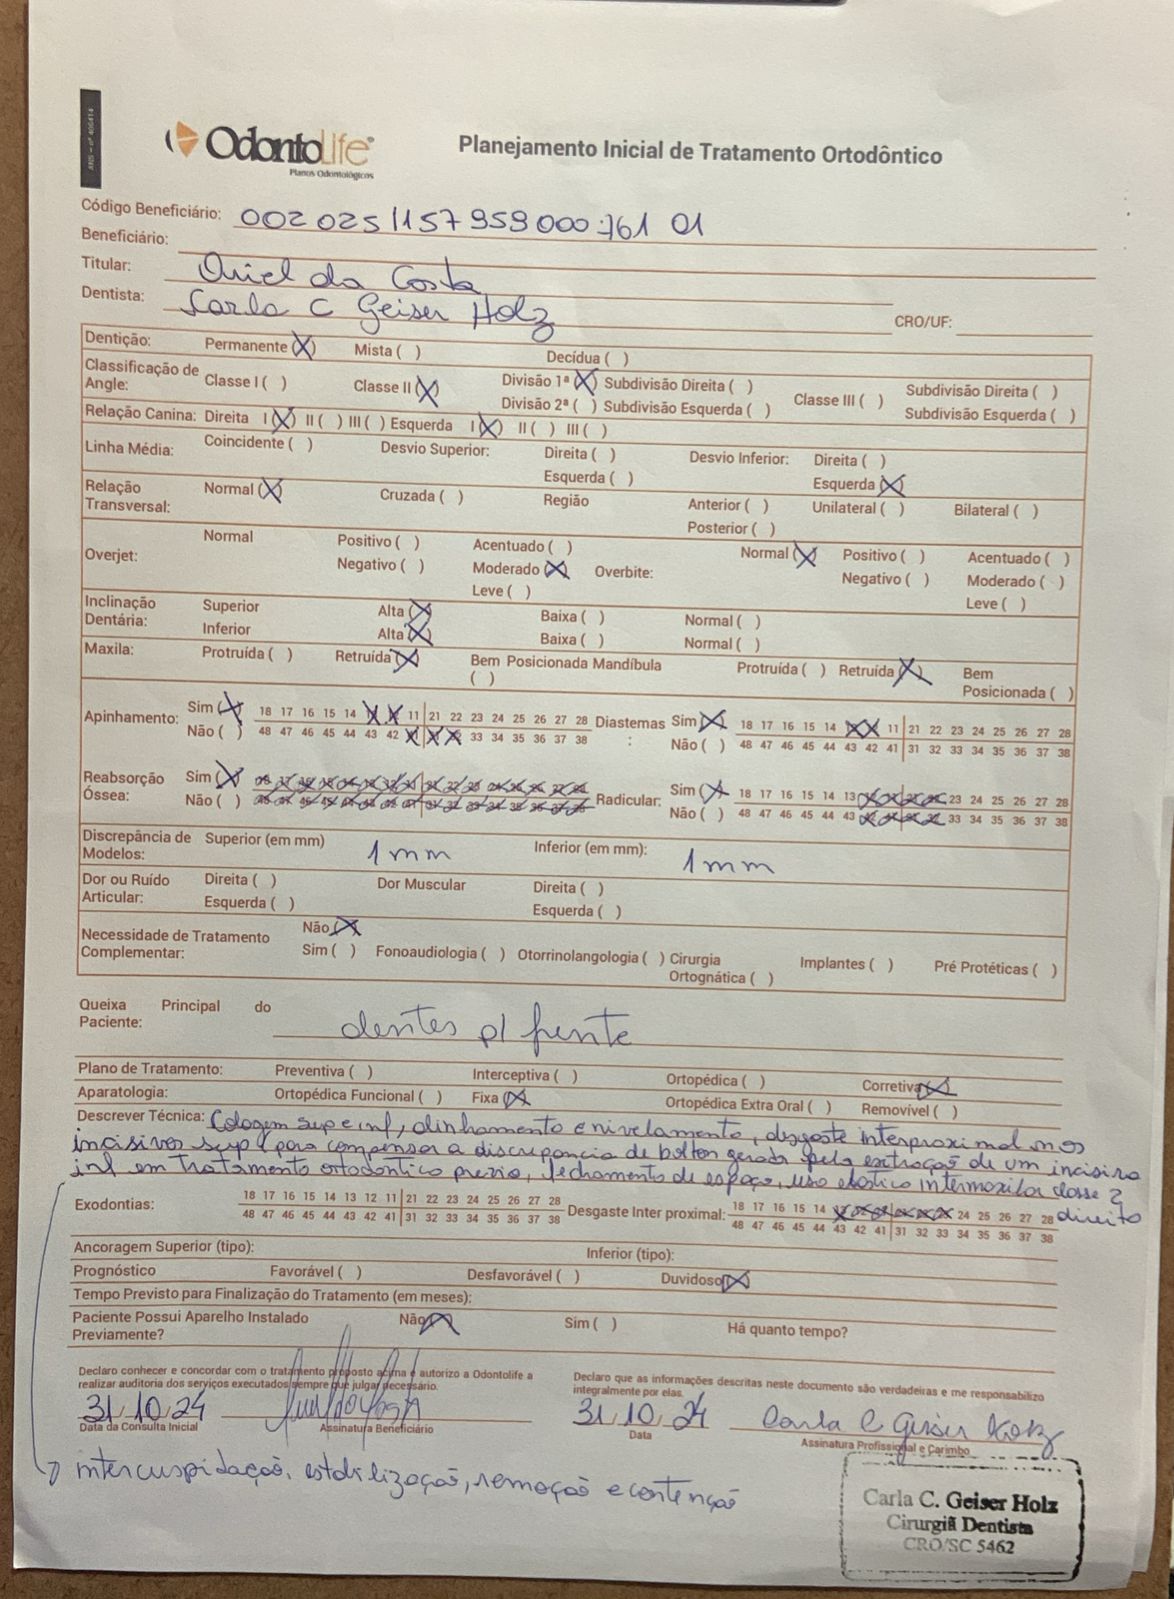 ANS - nº 406414
OdontoLife®
Planos Odontológicos
Planejamento Inicial de Tratamento Ortodôntico
Código Beneficiário: 002 025 1157 959 000 761 01
Beneficiário:
Titular: Oriel da Costa
Dentista: Carla C Geiser Holz CRO/UF:
Dentição: Permanente (X) Mista ( ) Decídua ( )
Classificação de Angle: Classe I ( ) Classe II (X) Divisão 1ª (X) Subdivisão Direita ( ) Classe III ( ) Subdivisão Direita ( )
Divisão 2ª ( ) Subdivisão Esquerda ( ) Subdivisão Esquerda ( )
Relação Canina: Direita I (X) II ( ) III ( ) Esquerda I (X) II ( ) III ( )
Linha Média: Coincidente ( ) Desvio Superior: Direita ( ) Desvio Inferior: Direita ( )
Esquerda ( ) Esquerda (X)
Relação Transversal: Normal (X) Cruzada ( ) Região Anterior ( ) Unilateral ( ) Bilateral ( )
Posterior ( )
Overjet: Normal Positivo ( ) Acentuado ( ) Overbite: Normal (X) Positivo ( ) Acentuado ( )
Negativo ( ) Moderado (X) Negativo ( ) Moderado ( )
Leve ( ) Leve ( )
Inclinação Dentária: Superior Alta (X) Baixa ( ) Normal ( )
Inferior Alta (X) Baixa ( ) Normal ( )
Maxila: Protruída ( ) Retruída (X) Bem Posicionada ( ) Mandíbula Protruída ( ) Retruída (X) Bem Posicionada ( )
Apinhamento: Sim (X) 18 17 16 15 14 X X 11 21 22 23 24 25 26 27 28 Diastemas: Sim (X) 18 17 16 15 14 X X 11 21 22 23 24 25 26 27 28
Não ( ) 48 47 46 45 44 43 42 X X X 33 34 35 36 37 38 Não ( ) 48 47 46 45 44 43 42 41 31 32 33 34 35 36 37 38
Reabsorção Óssea: Sim (X) Radicular: Sim (X) 18 17 16 15 14 13 X X X X 23 24 25 26 27 28
Não ( ) Não ( ) 48 47 46 45 44 43 X X X X 33 34 35 36 37 38
Discrepância de Modelos: Superior (em mm) 1 mm Inferior (em mm): 1 mm
Dor ou Ruído Articular: Direita ( ) Dor Muscular Direita ( )
Esquerda ( ) Esquerda ( )
Necessidade de Tratamento Complementar: Não (X)
Sim ( ) Fonoaudiologia ( ) Otorrinolangologia ( ) Cirurgia Ortognática ( ) Implantes ( ) Pré Protéticas ( )
Queixa Principal do Paciente: dentes p/ frente
Plano de Tratamento: Preventiva ( ) Interceptiva ( ) Ortopédica ( ) Corretiva (X)
Aparatologia: Ortopédica Funcional ( ) Fixa (X) Ortopédica Extra Oral ( ) Removível ( )
Descrever Técnica: Colagem sup e inf, alinhamento e nivelamento, desgaste interproximal nos
incisivos sup para compensar a discrepancia de bolton gerada pela extração de um incisivo
inf em tratamento ortodôntico previo, fechamento de espaço, uso elastico intermaxilar classe 2
direito
Exodontias: 18 17 16 15 14 13 12 11 21 22 23 24 25 26 27 28 Desgaste Inter proximal: 18 17 16 15 14 X X X X X X 24 25 26 27 28
48 47 46 45 44 43 42 41 31 32 33 34 35 36 37 38 48 47 46 45 44 43 42 41 31 32 33 34 35 36 37 38
Ancoragem Superior (tipo): Inferior (tipo):
Prognóstico Favorável ( ) Desfavorável ( ) Duvidoso (X)
Tempo Previsto para Finalização do Tratamento (em meses):
Paciente Possui Aparelho Instalado Previamente? Não (X) Sim ( ) Há quanto tempo?
Declaro conhecer e concordar com o tratamento proposto acima e autorizo a Odontolife a
realizar auditoria dos serviços executados sempre que julgar necessário.
Declaro que as informações descritas neste documento são verdadeiras e me responsabilizo
integralmente por elas.
31 10 24
Data da Consulta Inicial Assinatura Beneficiário
31, 10, 24 Carla C Geiser Holz
Data Assinatura Profissional e Carimbo
intercuspidação, estabilização, remoção e contenção
Carla C. Geiser Holz
Cirurgiã Dentista
CRO/SC 5462